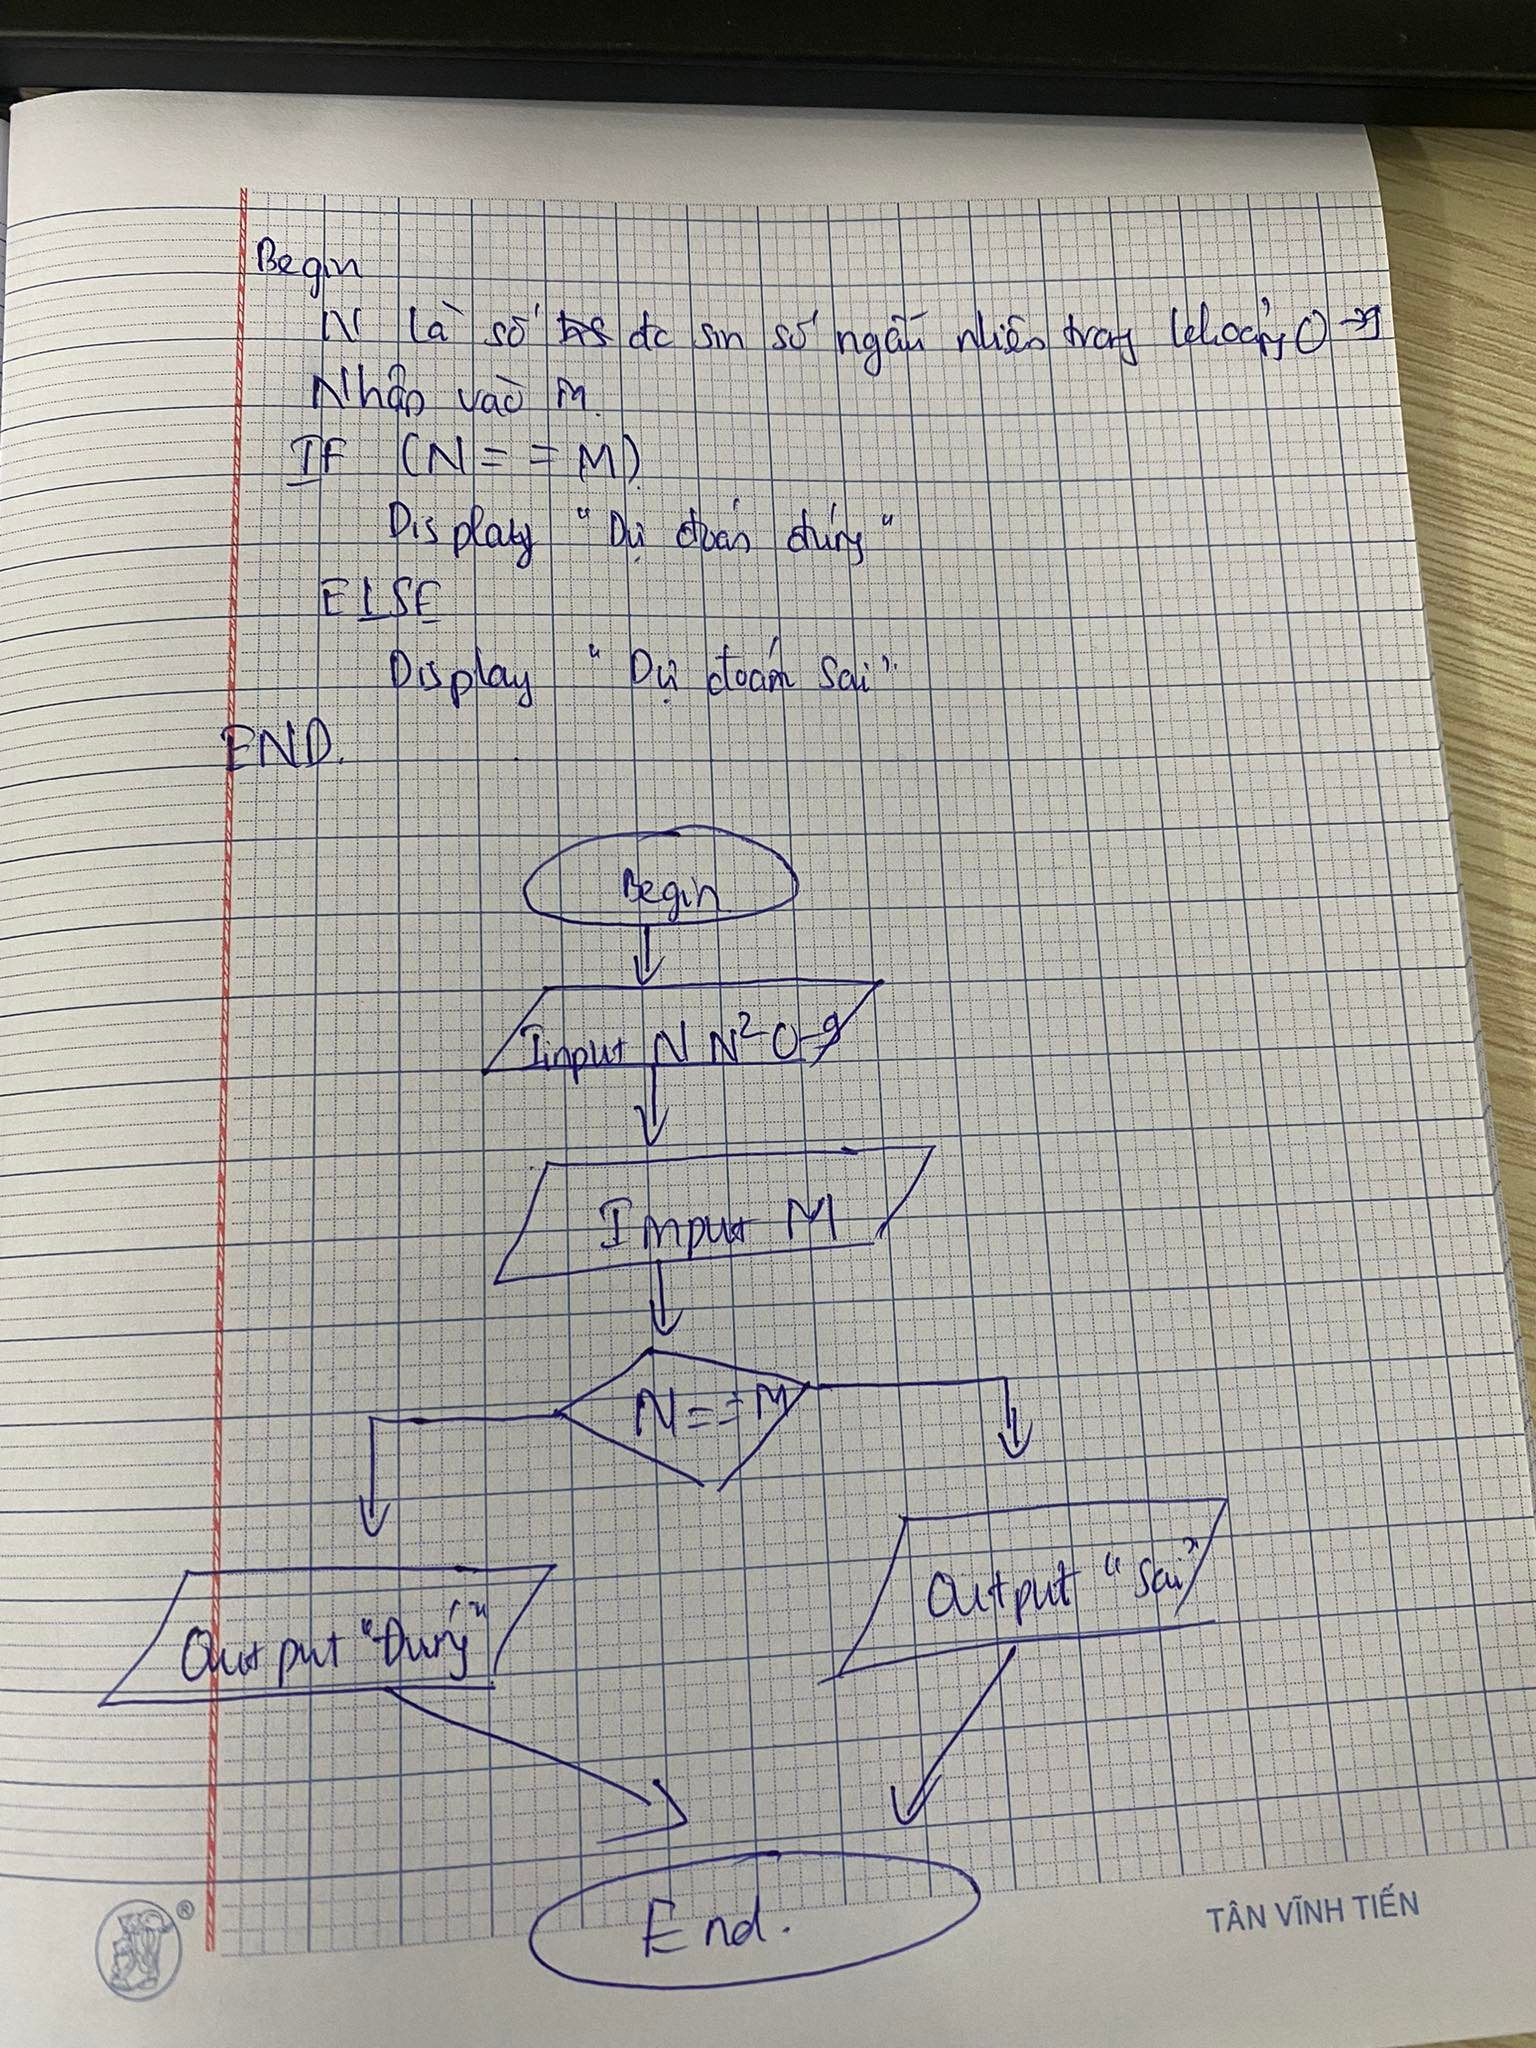 Begin
N là số đc sin số ngẫu nhiên trong khoảng 0 → 9
Nhập vào M.
IF (N == M)
Display "Dự đoán đúng"
ELSE
Display "Dự đoán sai"
END.
Begin
Input N N² 0-9
Input M
N == M
Output "Sai"
Output "Đúng"
End.
®
TÂN VĨNH TIẾN